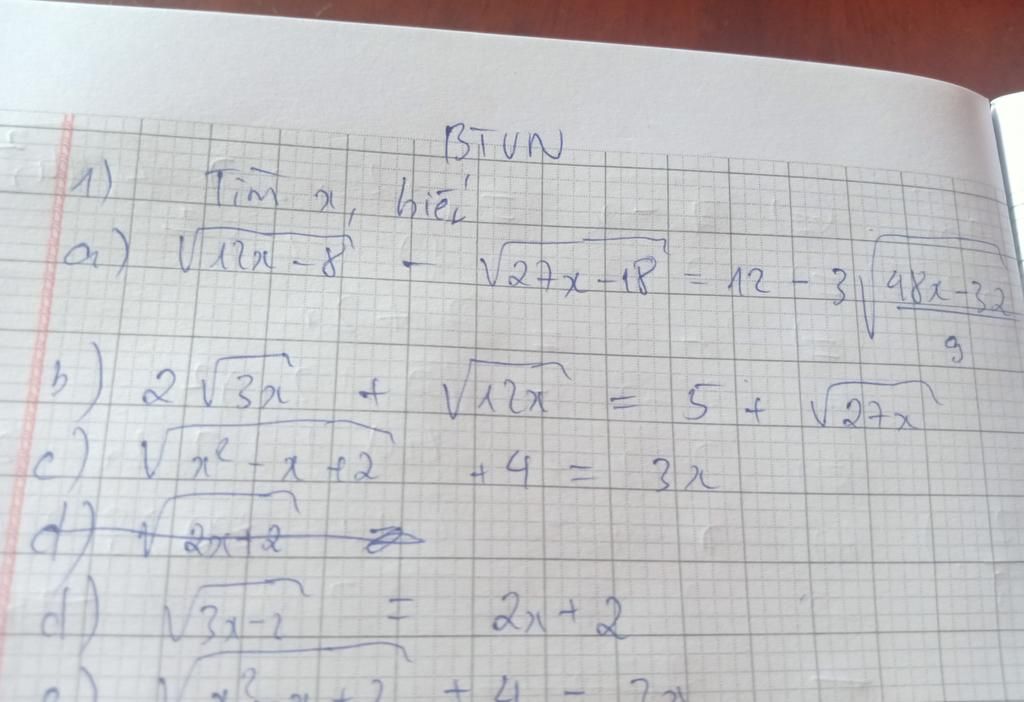 BTVN
1) Tìm x, biết
a) √(12x - 8) - √(27x - 18) = 12 - 3√((48x - 32)/9)
b) 2√(3x) + √(12x) = 5 + √(27x)
c) √(x² - x + 2) + 4 = 3x
d) √(2x+2) =
d) √(3x-2) = 2x + 2